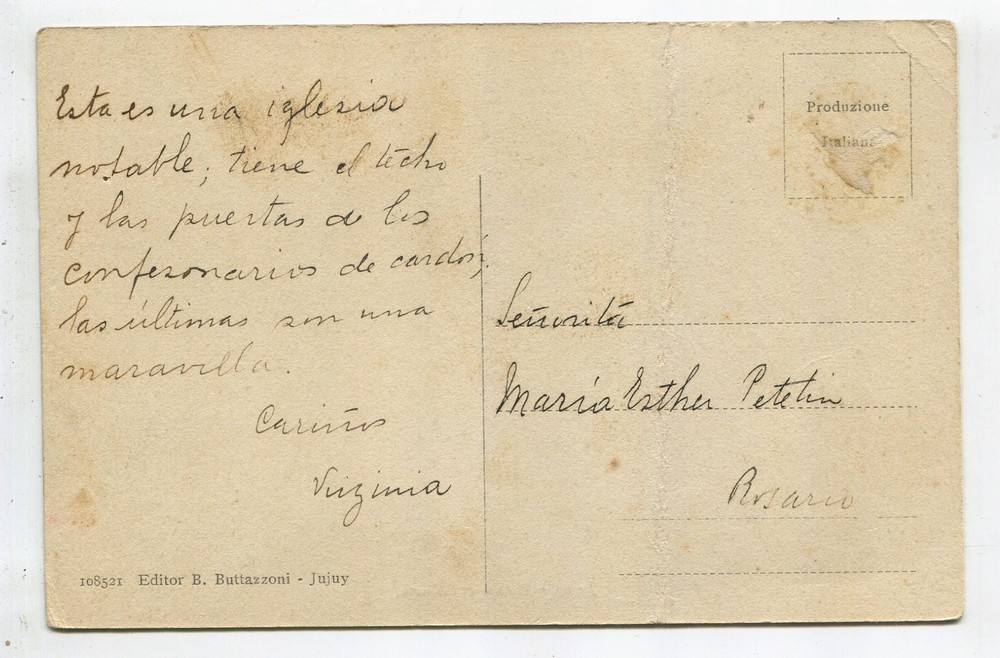 Esta es una iglesia
notable; tiene el techo
y las puertas de los
confesonarios de cardón;
las últimas son una
maravilla.
Cariños
Virginia
108521 Editor B. Buttazzoni - Jujuy
Produzione
Italiana
Señorita
María Esther Petetin
Rosario